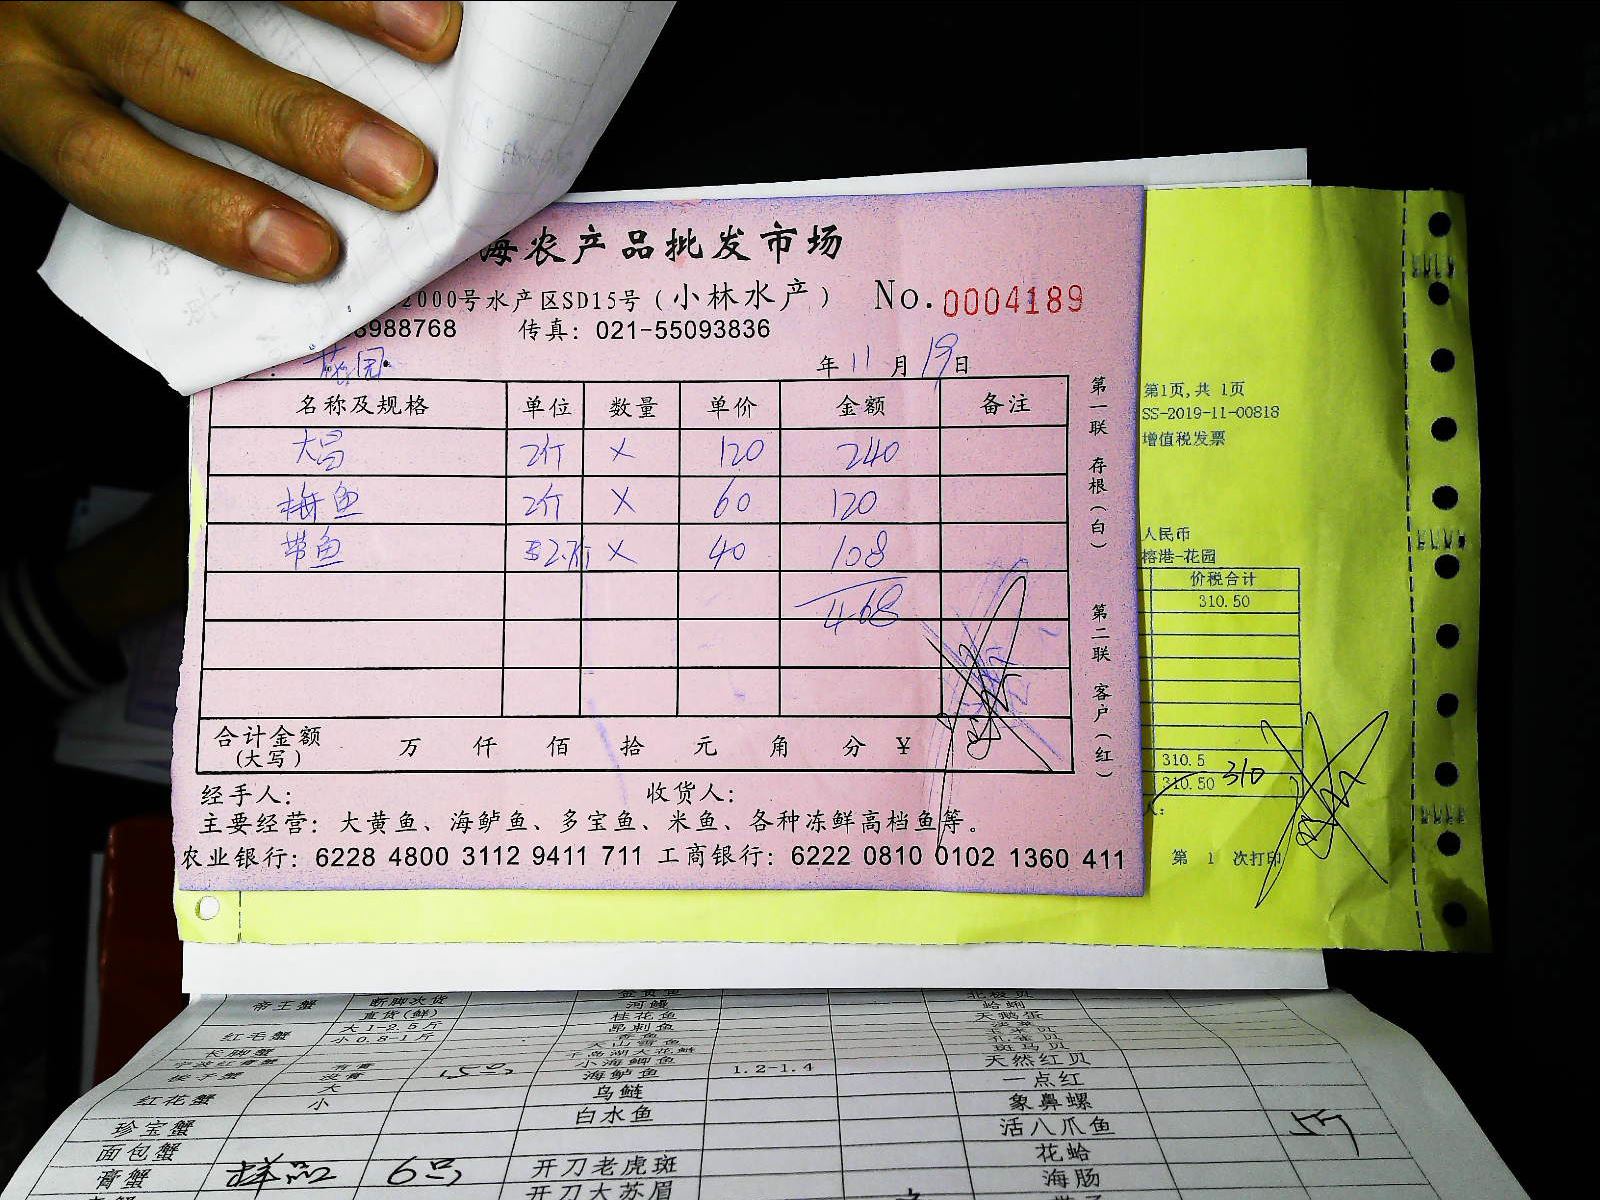 海农产品批发市场
2000号水产区SD15号（小林水产） No.0004189
8988768 传真: 021-55093836
: 花园 年 11 月 19 日
名称及规格 单位 数量 单价 金额 备注
大昌 2斤 × 120 240
梅鱼 2斤 × 60 120
带鱼 2.7斤 × 40 108
468
合计金额 万 仟 佰 拾 元 角 分 ￥
(大写)
经手人: 收货人:
主要经营: 大黄鱼、海鲈鱼、多宝鱼、米鱼、各种冻鲜高档鱼等。
农业银行: 6228 4800 3112 9411 711 工商银行: 6222 0810 0102 1360 411
第一联 存根(白) 第二联 客户(红)
第1页,共 1页
SS-2019-11-00818
增值税发票
人民币
榕港-花园
价税合计
310.50
310.5
310.50 310
人:
第 1 次打印
帝王蟹 断脚次货 河鳗 蛤蜊
直货(鲜) 桂花鱼 天鹅蛋
红毛蟹 大1-2.5斤 昂刺鱼
小0.8-1斤
长脚蟹 斑马贝
千岛湖大花鲢
小海鲫鱼 天然红贝
没膏 15只 海鲈鱼 1.2-1.4
红花蟹 大 乌鲢 一点红
小 白水鱼 象鼻螺
珍宝蟹 活八爪鱼 5斤
面包蟹 花蛤
膏蟹 样品 6只 开刀老虎斑 海肠
开刀大苏眉